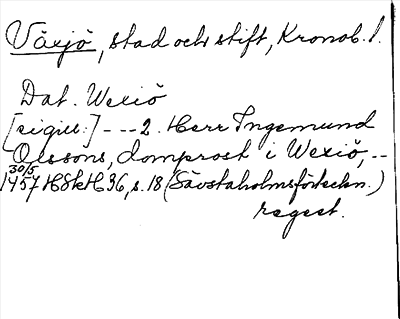 Växjö, stad och stift, Kronob. l.
Dat. Wexiö
[sigill:] --- 2. Herr Ingemund
Olssons, domprost i Wexiö, --
30/5
1457 HSH 36, s. 18 (Sävstaholmsförteckn.)
regest.